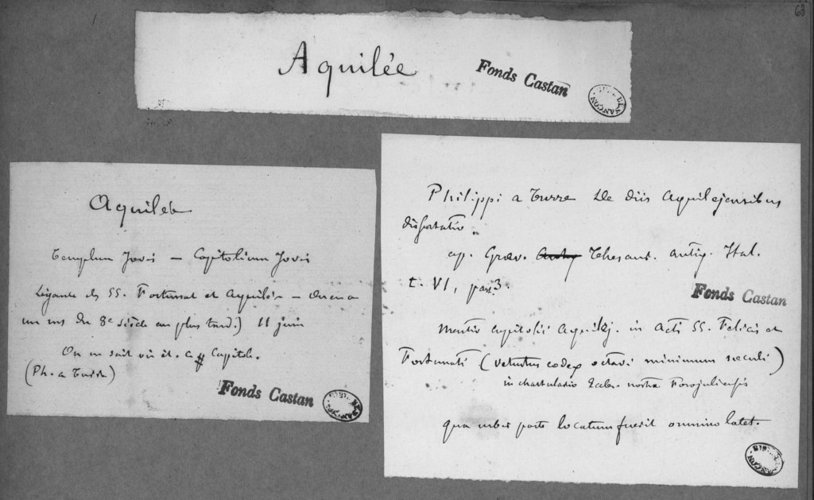 68
Aquilée
Fonds Castan
Aquilée
Templum Jovis — Capitolium Jovis
Légende des SS. Fortunat et Aquilée — On en a
un ms du 8e siècle au plus tard.) 11 juin
On ne sait où ét. ce Capitole.
(Ph. a Turre)
Fonds Castan
Philippi a Turre De Diis Aquilejensibus
dissertatio.
ap. Graev. Thesaur. antiq. Ital.
t. VI, pars 3
Fonds Castan
Mentio capitolii Aquilej. in Actis SS. Felicis et
Fortunati (vetustus codex octavi minimum seculi)
in chartulario Eccles. nostra Forojuliensis
qua urbis parte locatum fuerit omnino latet.